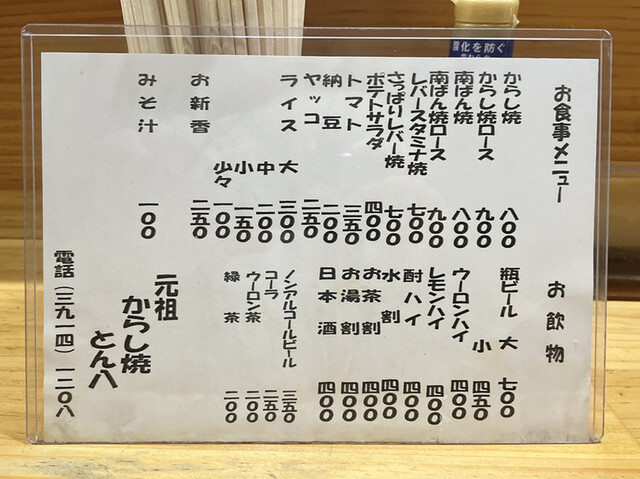 酸化を防ぐ
お食事メニュー
からし焼 八〇〇
からし焼ロース 九〇〇
南ばん焼 八〇〇
南ばん焼ロース 九〇〇
レバースタミナ焼 七〇〇
さっぱりレバー焼 七〇〇
ポテトサラダ 四〇〇
トマト 三五〇
納豆 二〇〇
ヤッコ 二五〇
ライス 大 三〇〇
中 二〇〇
小 一五〇
少々 一〇〇
お新香 二五〇
みそ汁 一〇〇
お飲物
瓶ビール 大 七〇〇
小 四五〇
ウーロンハイ 四〇〇
レモンハイ 四〇〇
酎ハイ 四〇〇
水割 四〇〇
お茶割 四〇〇
お湯割 四〇〇
日本酒 四〇〇
ノンアルコールビール 三五〇
コーラ 二五〇
ウーロン茶 二〇〇
緑茶 二〇〇
元祖
からし焼
とん八
電話(三九一四)一二〇八